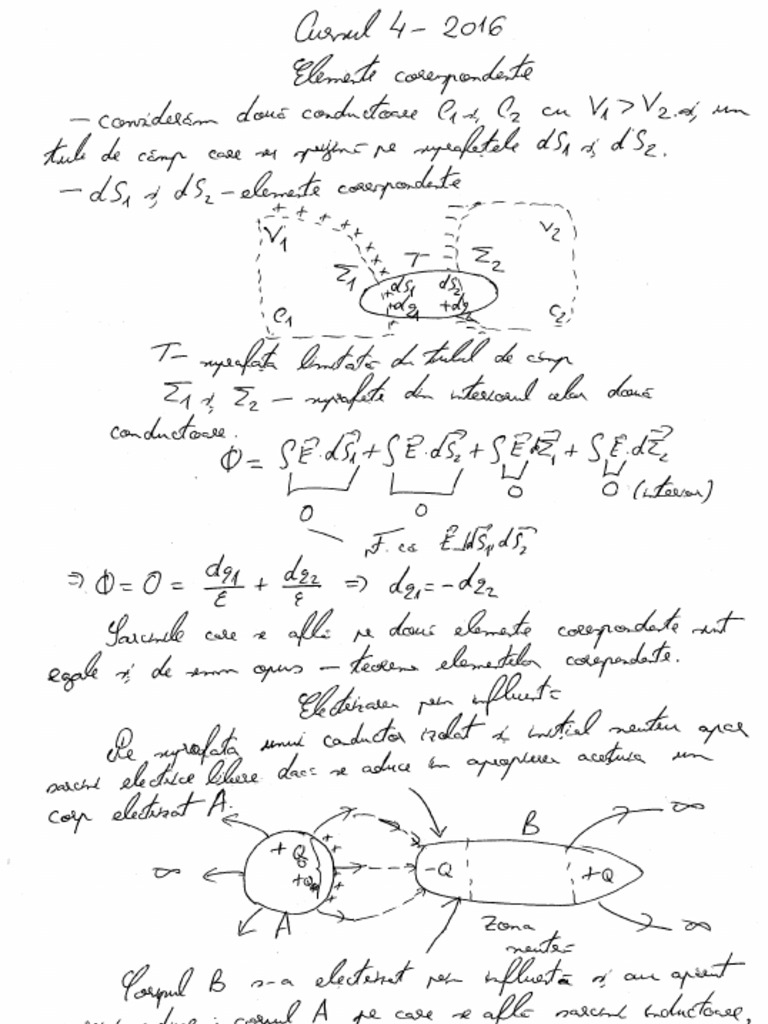 Cursul 4 - 2016
Elemente corespondente
- considerăm două conductoare C1 și C2 cu V1 > V2 și un
tub de câmp care se sprijină pe suprafețele dS1 și dS2.
- dS1 și dS2 - elemente corespondente
+ + + + + + + +
V1 V2
Σ1 T Σ2
dS1 dS2
+dq1 +dq2
C1 C2
T - suprafața limitată de tubul de câmp
Σ1 și Σ2 - suprafețe din interiorul celor două
conductoare.
Φ = ∫E·dS1 + ∫E·dS2 + ∫E·dΣ1 + ∫E·dΣ2
0 0 0 0 (interior)
F. că E⊥dS1, dS2
⇒ Φ = 0 = dq1/ε + dq2/ε ⇒ dq1 = -dq2
Sarcinile care se află pe două elemente corespondente sunt
egale și de semn opus - teorema elementelor corespondente.
Electrizarea prin influență
Pe suprafața unui conductor izolat și inițial neutru apar
sarcini electrice libere dacă se aduce în apropierea acestuia un
corp electrizat A.
∞ B ∞
+Q0 -Q +Q
A Zona ∞
neutră
Corpul B s-a electrizat prin influență și au apărut
corpul A pe care se află sarcini inductoare,